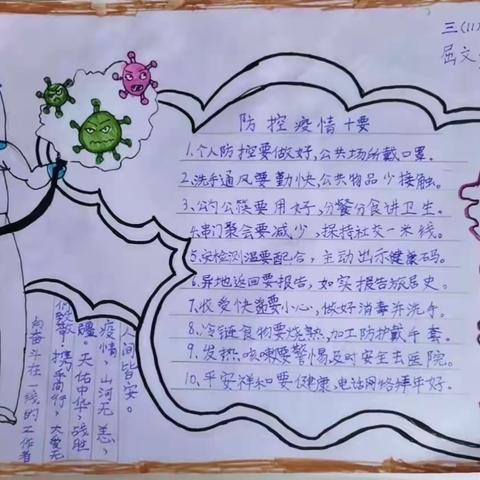 三(11)
屈文
防控疫情十要
1.个人防控要做好,公共场所戴口罩。
2.洗手通风要勤快,公共物品少接触。
3.公勺公筷要用好,分餐分食讲卫生。
4.串门聚会要减少,保持社交一米线。
5.亮码测温要配合,主动出示健康码。
6.异地返回要报告,如实报告旅居史。
7.收爱快递要小心,做好消毒并洗手。
8.冷链食物要烧熟,加工防护戴手套。
9.发热、咳嗽要警惕及时安全去医院。
10.平安祥和要健康,电话网络拜年好。
人间皆安。
疫情,山河无恙,
疆,天佑中华,战胜
携手同行,大爱无
向奋斗在一线的工作者